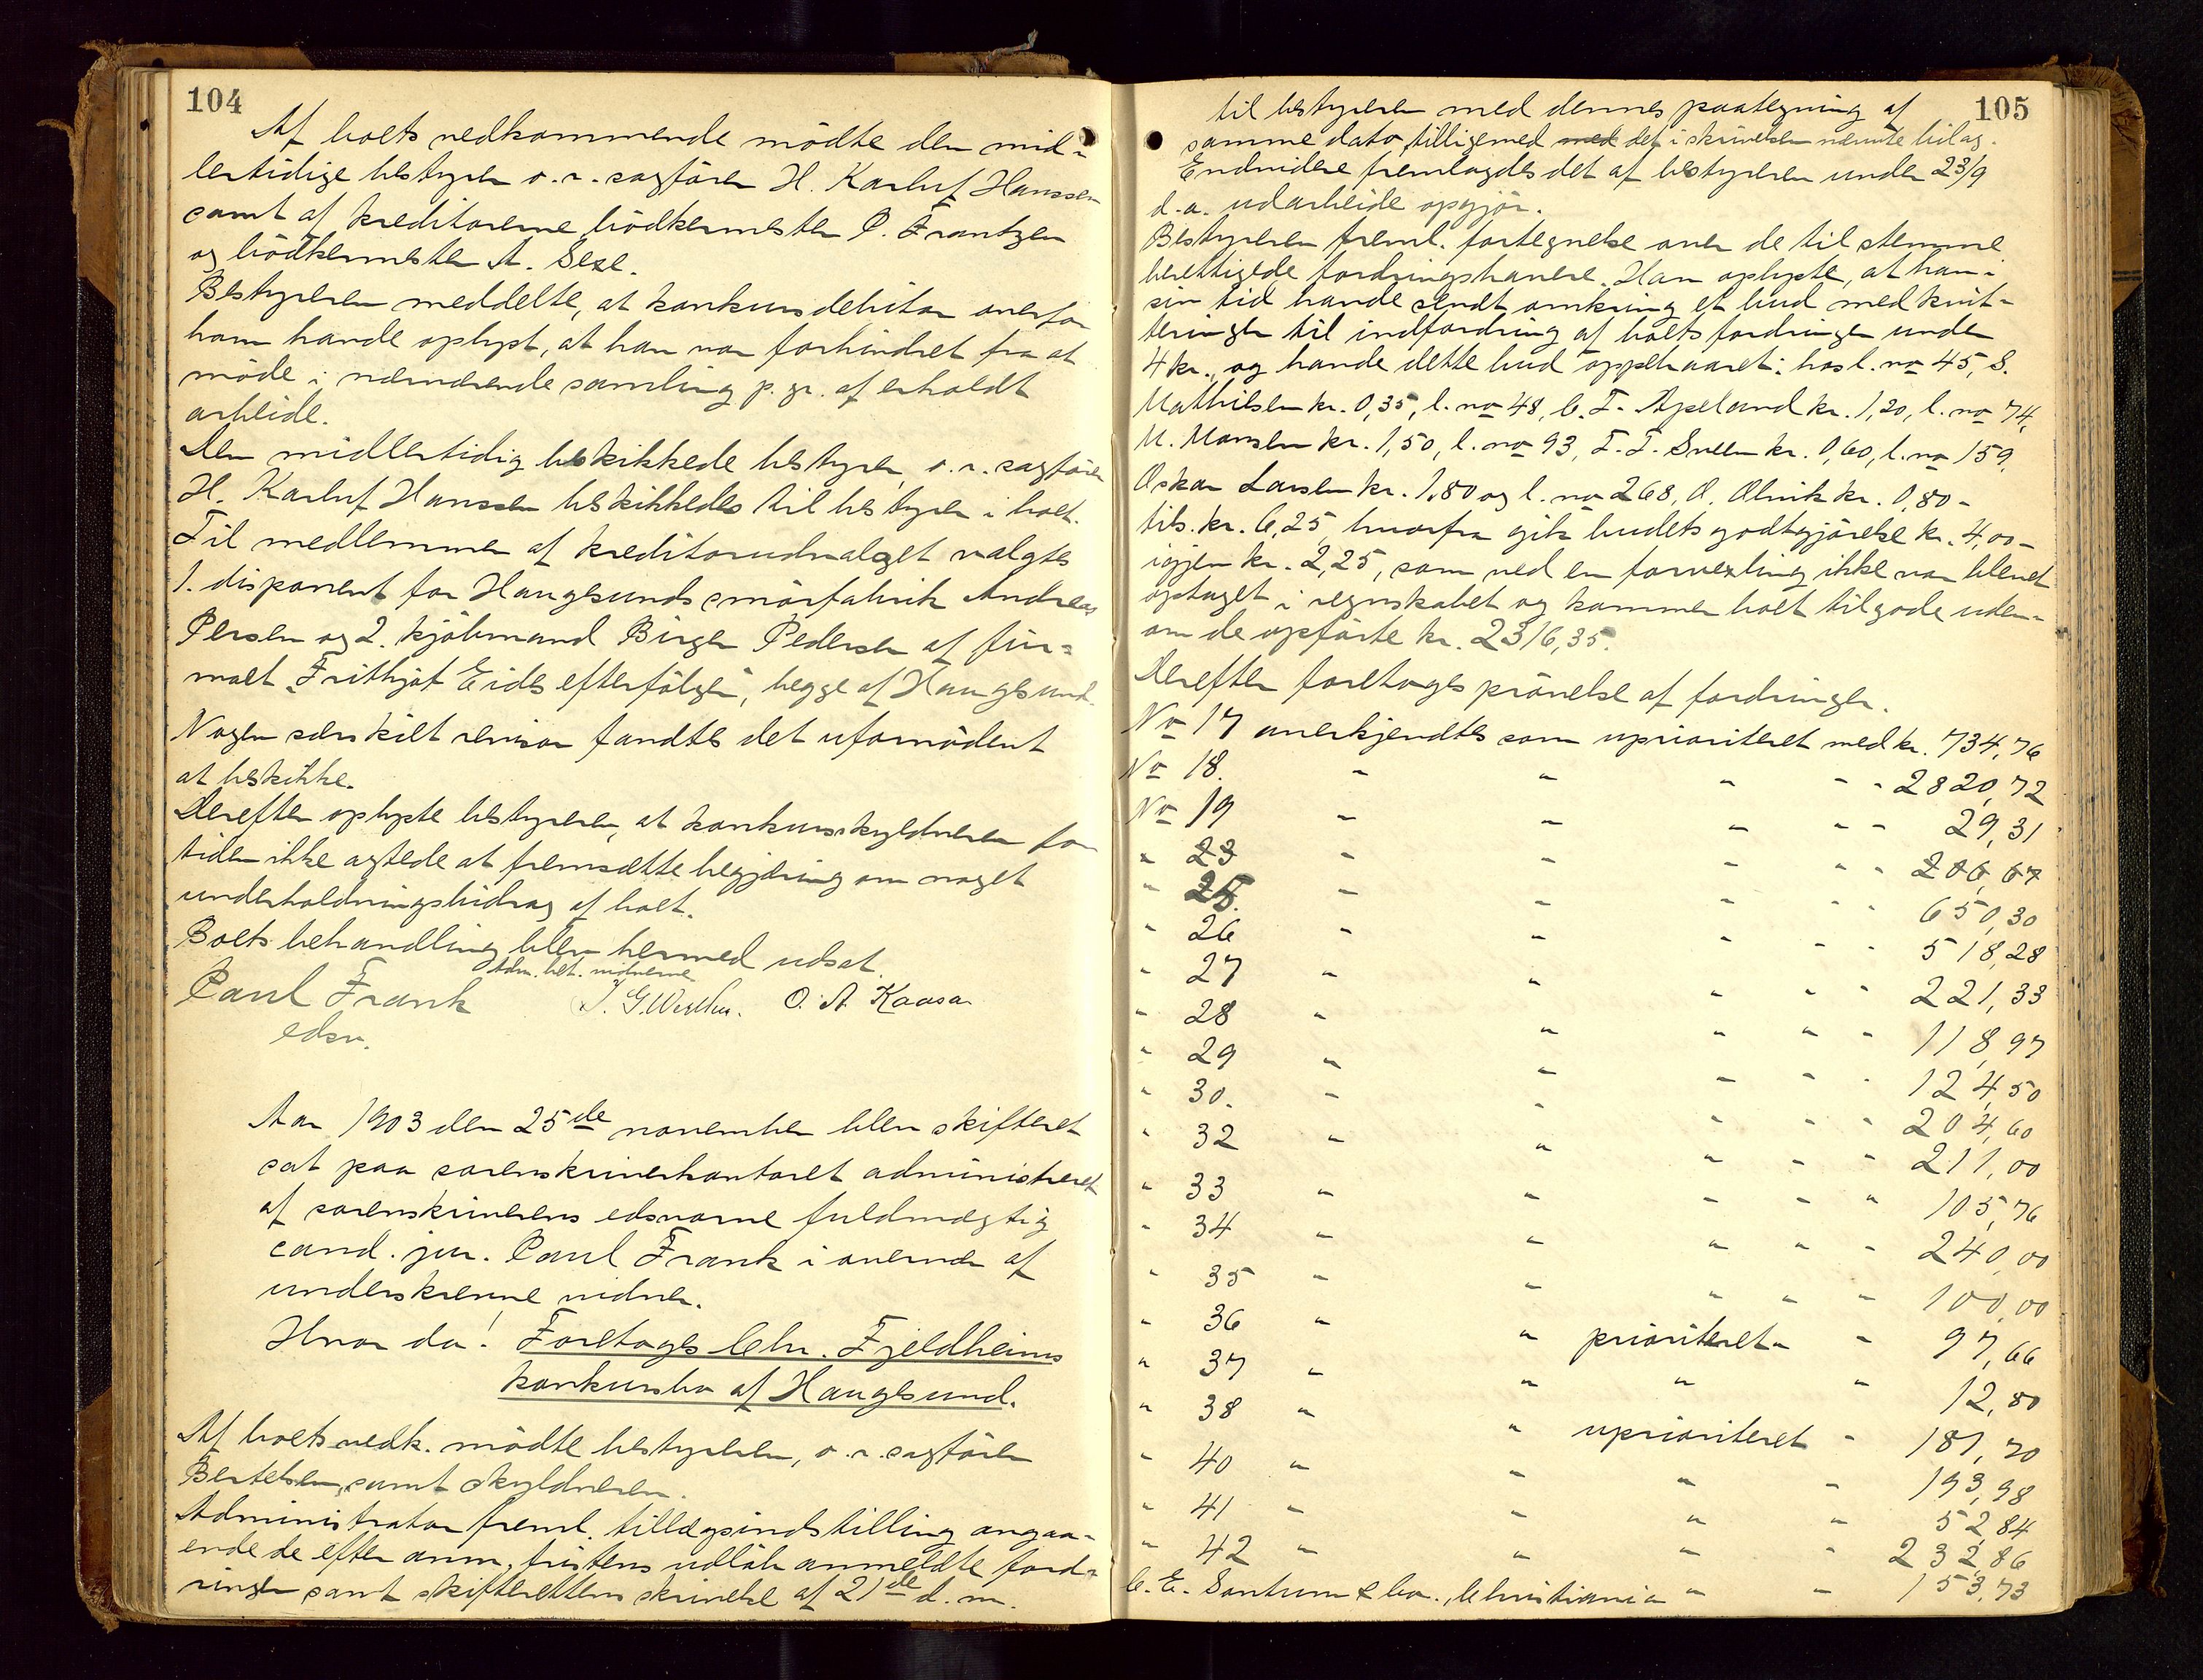 104
Af boets vedkommende mödte den mid-
lertidige bestyrer o.r.sagförer H. Karluf Hanssen
samt af kreditorerne bödkermester P. Frantzen
og bödkermester A. Sexe.
Bestyreren meddelte, at konkursdebitor overfor
ham havde oplyst, at han var forhindret fra at
möde i nærværende samling p.gr. af erholdt
arbeide.
Den midlertidig beskikkede bestyrer, o.r.sagförer
H. Karluf Hanssen beskikkedes til bestyrer i boet.
Til medlemmer af kreditorudvalget valgtes
1. disponent for Haugesunds smörfabrik Andreas
Persen og 2. kjöbmand Birger Pedersen af fir-
maet "Frithjof Eides efterfölger", begge af Haugesund.
Nogen særskilt revisor fandtes det ufornödent
at beskikke.
Derefter oplyste bestyreren, at konkursskyldneren for
tiden ikke agtede at fremsætte begjæring om noget
underholdningsbidrag af boet.
Boets behandling blev hermed udsat.
Adm. bet. vidnerne
Paul Frank O. A. Kaasa
edsv.
Aar 1903 den 25de november blev skifteret
sat paa sorenskriverkontoret administreret
af sorenskriverens edsvorne fuldmægtig
cand. jur. Paul Frank i overvær af
underskrevne vidner.
Hvor da! Foretoges Chr. Fjeldheims
konkursbo af Haugesund.
Af boets vedk. mödte bestyreren, o.r.sagförer
Bertelsen, samt skyldneren.
Administrator freml. tillægsindstilling angaa-
ende de efter anm.fristens udlöb anmeldte ford-
ringer samt skifterettens skrivelse af 21de d.m.
105
til bestyreren med dennes paategning af
samme dato, tilligemed med det i skrivelsen nævnte bilag.
Endvidere fremlagdes det af bestyreren under 23/9
d.a. udarbeide opgjör.
Bestyreren freml. fortegnelse over de til stemme
berettigede fordringshavere. Han oplyste, at han i
sin tid havde sendt omkring et bud med kvit-
teringer til indfordring af boets fordringer under
4 kr., og havde dette bud oppebaaret: hos l. no 45, S.
Mathilsen kr. 0,35, l. no 48, C. T. Apeland kr. 1,20, l. no 74,
M. Monsen kr. 1,50, l. no 93, T. T. Sveen kr. 0,60, l. no 159,
Oskar Larsen kr. 1,80 og l. no 268, O. Alvik kr. 0,80 -
tils. kr. 6,25, hvorfra gik budets godtgjörelse kr. 4,00 -
igjen kr. 2,25, som ved en forvexling ikke var blevet
optaget i regnskabet og kommer boet tilgode uden-
om de opförte kr. 2316,35.
Derefter foretoges prövelse af fordringer.
No 17 anerkjendtes som uprioriteret med kr. 734,76
No 18. " " " " " 2820,72
No 19 " " " " " 29,31
" 23 " " " " " 206,67
" 25. " " " " " 650,30
" 26 " " " " " 518,28
" 27 " " " " " 221,33
" 28 " " " " " 118,97
" 29 " " " " " 124,50
" 30. " " " " " 204,60
" 32 " " " " " 211,00
" 33 " " " " " 105,76
" 34 " " " " " 240,00
" 35 " " " " " 100,00
" 36 " " prioriteret " " 97,66
" 37 " " " " 12,80
" 38 " " uprioriteret " 181,70
" 40 " " " " 193,98
" 41 " " " " 52,84
" 42 " " " " 232,86
C. E. Sontum & Co., Christiania " " 153,73